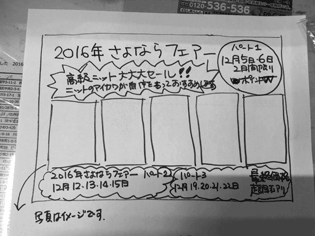 0120-536-536
2016年さよならフェアー
パート1
12月5日・6日
2日間限り
Wポイント
高級ニット大大大セール!!
ニットのマイカワが自信をもっておすすめする
2016年さよならフェアー パート2
12月12・13・14・15日
パート3
12月19.20.21.22日
写真はイメージです.